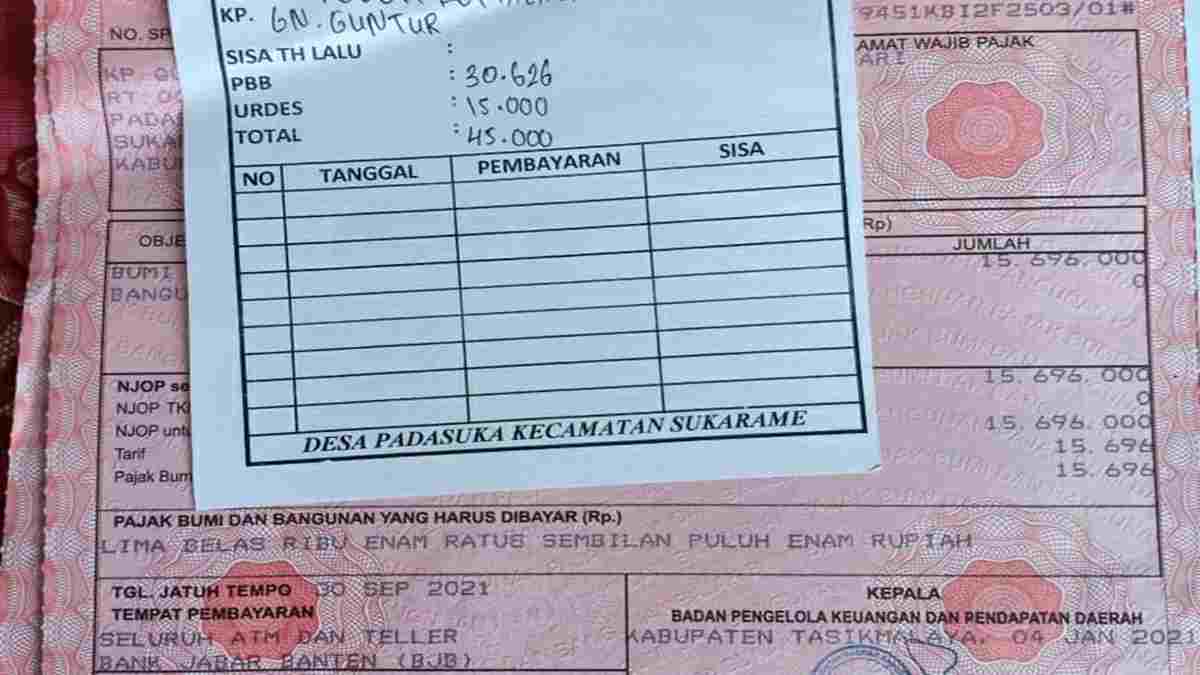 KP. GN. GUNTUR
SISA TH LALU :
PBB : 30.626
URDES : 15.000
TOTAL : 45.000
NO TANGGAL PEMBAYARAN SISA
DESA PADASUKA KECAMATAN SUKARAME
NO. SP
9451KBI2F2503/01#
AMAT WAJIB PAJAK
ARI
KP GU
RT 00
PADAS
SUKAR
KABUP
OBJE
Rp)
JUMLAH
BUMI 15.696.000
BANGU 0
NJOP se 15.696.000
NJOP TK 0
NJOP untu 15.696.000
Tarif 15.696
Pajak Bum 15.696
PAJAK BUMI DAN BANGUNAN YANG HARUS DIBAYAR (Rp.)
LIMA BELAS RIBU ENAM RATUS SEMBILAN PULUH ENAM RUPIAH
TGL. JATUH TEMPO 30 SEP 2021
TEMPAT PEMBAYARAN
SELURUH ATM DAN TELLER
BANK JABAR BANTEN (BJB)
KEPALA
BADAN PENGELOLA KEUANGAN DAN PENDAPATAN DAERAH
KABUPATEN TASIKMALAYA, 04 JAN 2021